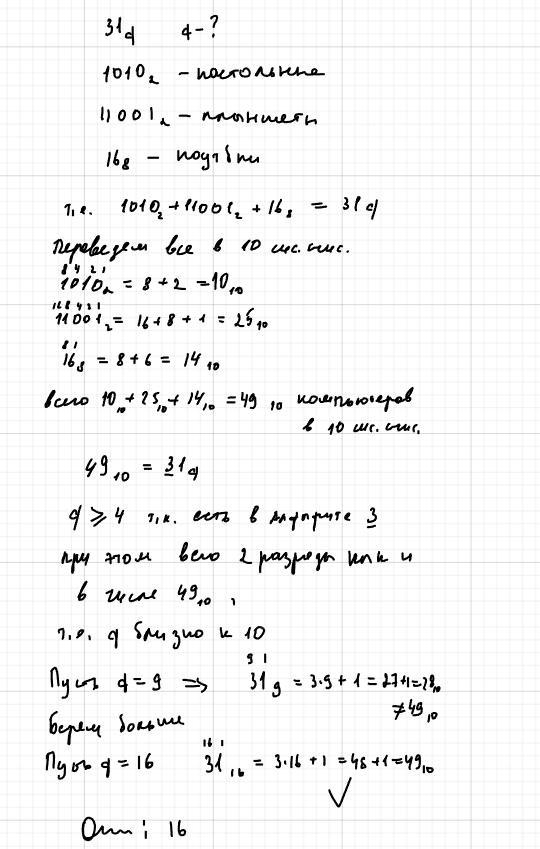 31q q - ?
1010₂ - настольные
11001₂ - планшеты
16₈ - ноутбуки
т.е. 1010₂ + 11001₂ + 16₈ = 31q
Переведем все в 10 сис. счис.
8 4 2 1
1010₂ = 8 + 2 = 10₁₀
16 8 4 2 1
11001₂ = 16 + 8 + 1 = 25₁₀
8 1
16₈ = 8 + 6 = 14₁₀
всего 10₁₀ + 25₁₀ + 14₁₀ = 49₁₀ компьютеров
в 10 сис. счис.
49₁₀ = 31q
q ⩾ 4 т.к. есть в алфавите 3
при этом всего 2 разряда как и
в числе 49₁₀,
т.е. q близко к 10
Пусть q = 9 ⇒
9 1
31₉ = 3·9 + 1 = 27+1=28₁₀
≠49₁₀
Берем больше
Пусть q = 16
16 1
31₁₆ = 3·16 + 1 = 48 + 1 = 49₁₀
✓
Отв: 16